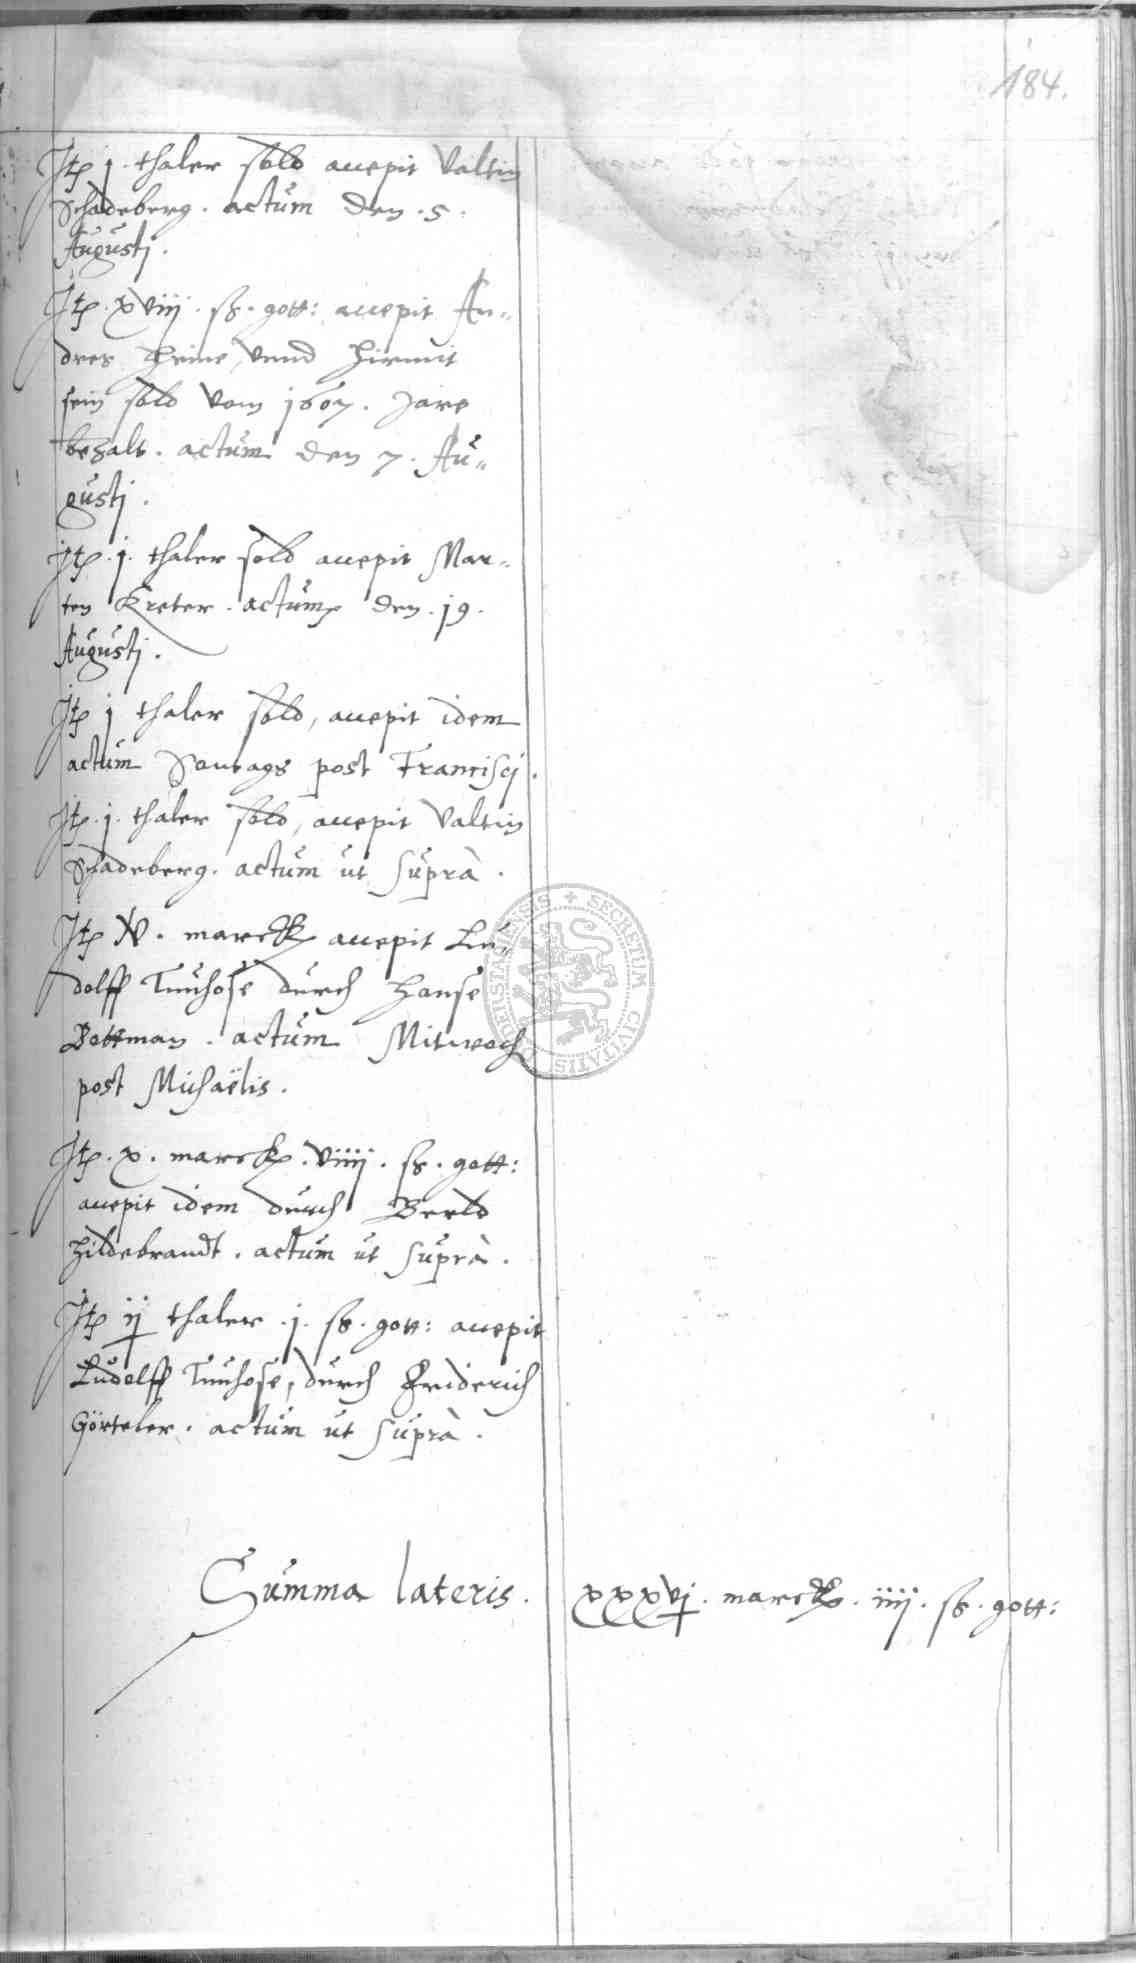 184.
Jtp j. thaler sold accepit Valtin
Schadeberg. actum den. 5.
Augustj.
Jtp. xviij. ß. gott: accepit An=
dres Heine, vnnd hirmit
sein sold vom 1607. Jare
bezalt. actum den 7. Au=
gustj.
Jtp. j. thaler sold accepit Mar=
ten Kreter. actum den. 19.
Augustj.
Jtp j thaler sold, accepit idem
actum Sontags post Franciscj.
Jtp. j. thaler sold, accepit Valtin
Schadeberg. actum ut suprà.
Jtp X. marck accepit Lu=
dolff Tunhose durch Hanse
Bottman. actum Mitwoch
post Michaëlis.
Jtp. x. marck. viiij. ß. gott:
accepit idem durch Berld
Hildebrandt. actum ut suprà.
Jtp ij thaler. j. ß. gott: accepit
Ludolff Tunhose, durch Friderich
Görteler. actum ut suprà.
Summa lateris. xxxvj. marck. iiij. ß. gott:
SECRETUM CIVITATIS DERSTADIENSIS